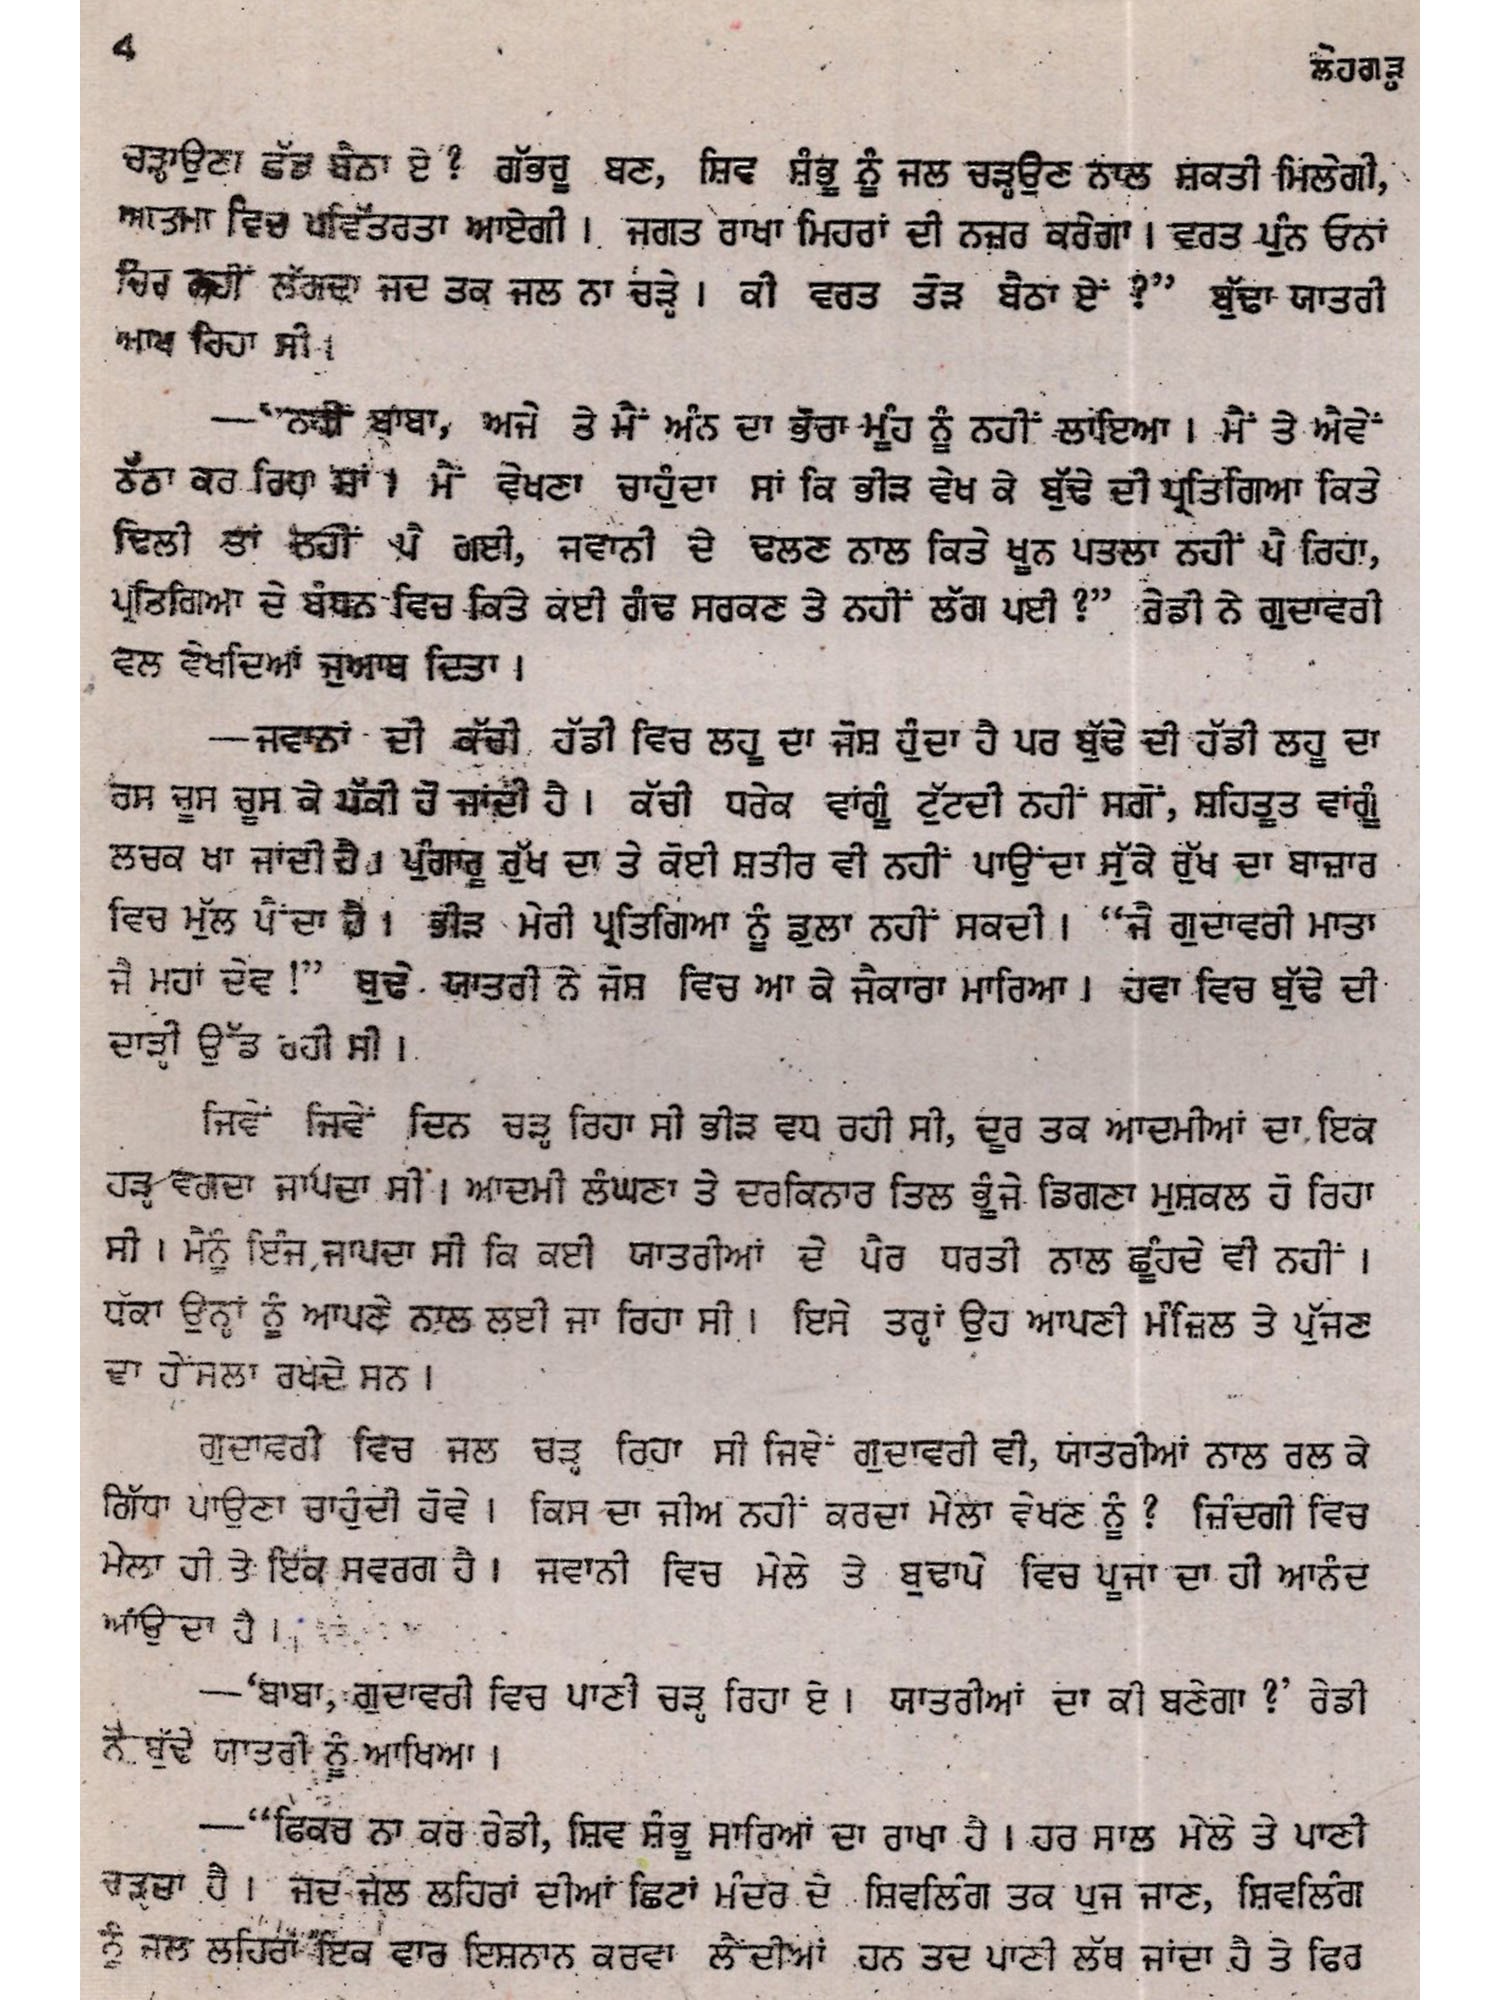 4
ਲੋਹਗੜ੍ਹ
ਚੜ੍ਹਾਉਣਾ ਛੱਡ ਬੈਠਾ ਏ ? ਗੱਭਰੂ ਬਣ, ਸ਼ਿਵ ਸ਼ੰਭੂ ਨੂੰ ਜਲ ਚੜ੍ਹਾਉਣ ਨਾਲ ਸ਼ਕਤੀ ਮਿਲੇਗੀ,
ਆਤਮਾ ਵਿਚ ਪਵਿੱਤਰਤਾ ਆਏਗੀ । ਜਗਤ ਰਾਖਾ ਮਿਹਰਾਂ ਦੀ ਨਜ਼ਰ ਕਰੇਗਾ । ਵਰਤ ਪੁੰਨ ਓਨਾਂ
ਚਿਰ ਨਹੀਂ ਲੱਗਦਾ ਜਦ ਤਕ ਜਲ ਨਾ ਚੜ੍ਹੇ । ਕੀ ਵਰਤ ਤੋੜ ਬੈਠਾ ਏਂ ?” ਬੁੱਢਾ ਯਾਤਰੀ
ਆਖ ਰਿਹਾ ਸੀ ।
—“ਨਹੀਂ ਬਾਬਾ, ਅਜੇ ਤੇ ਮੈਂ ਅੰਨ ਦਾ ਭੋਰਾ ਮੂੰਹ ਨੂੰ ਨਹੀਂ ਲਾਇਆ । ਮੈਂ ਤੇ ਐਵੇਂ
ਠੱਠਾ ਕਰ ਰਿਹਾ ਸਾਂ । ਮੈਂ ਵੇਖਣਾ ਚਾਹੁੰਦਾ ਸਾਂ ਕਿ ਭੀੜ ਵੇਖ ਕੇ ਬੁੱਢੇ ਦੀ ਪ੍ਰਤਿਗਿਆ ਕਿਤੇ
ਢਿਲੀ ਤਾਂ ਨਹੀਂ ਪੈ ਗਈ, ਜਵਾਨੀ ਦੇ ਢਲਣ ਨਾਲ ਕਿਤੇ ਖੂਨ ਪਤਲਾ ਨਹੀਂ ਪੈ ਰਿਹਾ,
ਪ੍ਰਤਿਗਿਆ ਦੇ ਬੰਧਨ ਵਿਚ ਕਿਤੇ ਕੋਈ ਗੰਢ ਸਰਕਣ ਤੇ ਨਹੀਂ ਲੱਗ ਪਈ ?” ਰੇਡੀ ਨੇ ਗੁਦਾਵਰੀ
ਵਲ ਵੇਖਦਿਆਂ ਜੁਆਬ ਦਿਤਾ ।
—ਜਵਾਨਾਂ ਦੀ ਕੱਚੀ ਹੱਡੀ ਵਿਚ ਲਹੂ ਦਾ ਜੋਸ਼ ਹੁੰਦਾ ਹੈ ਪਰ ਬੁੱਢੇ ਦੀ ਹੱਡੀ ਲਹੂ ਦਾ
ਰਸ ਚੂਸ ਚੂਸ ਕੇ ਪੱਕੀ ਹੋ ਜਾਂਦੀ ਹੈ । ਕੱਚੀ ਧਰੇਕ ਵਾਂਗੂੰ ਟੁੱਟਦੀ ਨਹੀਂ ਸਗੋਂ, ਸ਼ਹਿਤੂਤ ਵਾਂਗੂੰ
ਲਚਕ ਖਾ ਜਾਂਦੀ ਹੈ । ਪੁੰਗਾਰੂ ਰੁੱਖ ਦਾ ਤੇ ਕੋਈ ਸ਼ਤੀਰ ਵੀ ਨਹੀਂ ਪਾਉਂਦਾ ਸੁੱਕੇ ਰੁੱਖ ਦਾ ਬਾਜ਼ਾਰ
ਵਿਚ ਮੁੱਲ ਪੈਂਦਾ ਹੈ । ਭੀੜ ਮੇਰੀ ਪ੍ਰਤਿਗਿਆ ਨੂੰ ਡੁਲਾ ਨਹੀਂ ਸਕਦੀ । “ਜੈ ਗੁਦਾਵਰੀ ਮਾਤਾ
ਜੈ ਮਹਾਂ ਦੇਵ !” ਬੁਢੇ ਯਾਤਰੀ ਨੇ ਜੋਸ਼ ਵਿਚ ਆ ਕੇ ਜੈਕਾਰਾ ਮਾਰਿਆ । ਹਵਾ ਵਿਚ ਬੁੱਢੇ ਦੀ
ਦਾੜ੍ਹੀ ਉੱਡ ਰਹੀ ਸੀ ।
ਜਿਵੇਂ ਜਿਵੇਂ ਦਿਨ ਚੜ੍ਹ ਰਿਹਾ ਸੀ ਭੀੜ ਵਧ ਰਹੀ ਸੀ, ਦੂਰ ਤਕ ਆਦਮੀਆਂ ਦਾ ਇਕ
ਹੜ੍ਹ ਵਗਦਾ ਜਾਪਦਾ ਸੀ । ਆਦਮੀ ਲੰਘਣਾ ਤੇ ਦਰਕਿਨਾਰ ਤਿਲ ਭੂੰਜੇ ਡਿਗਣਾ ਮੁਸ਼ਕਲ ਹੋ ਰਿਹਾ
ਸੀ । ਮੈਨੂੰ ਇੰਜ ਜਾਪਦਾ ਸੀ ਕਿ ਕਈ ਯਾਤਰੀਆਂ ਦੇ ਪੈਰ ਧਰਤੀ ਨਾਲ ਛੂੰਹਦੇ ਵੀ ਨਹੀਂ ।
ਧੱਕਾ ਉਨ੍ਹਾਂ ਨੂੰ ਆਪਣੇ ਨਾਲ ਲਈ ਜਾ ਰਿਹਾ ਸੀ । ਇਸੇ ਤਰ੍ਹਾਂ ਉਹ ਆਪਣੀ ਮੰਜ਼ਿਲ ਤੇ ਪੁੱਜਣ
ਦਾ ਹੌਂਸਲਾ ਰਖਦੇ ਸਨ ।
ਗੁਦਾਵਰੀ ਵਿਚ ਜਲ ਚੜ੍ਹ ਰਿਹਾ ਸੀ ਜਿਵੇਂ ਗੁਦਾਵਰੀ ਵੀ, ਯਾਤਰੀਆਂ ਨਾਲ ਰਲ ਕੇ
ਗਿੱਧਾ ਪਾਉਣਾ ਚਾਹੁੰਦੀ ਹੋਵੇ । ਕਿਸ ਦਾ ਜੀਅ ਨਹੀਂ ਕਰਦਾ ਮੇਲਾ ਵੇਖਣ ਨੂੰ ? ਜ਼ਿੰਦਗੀ ਵਿਚ
ਮੇਲਾ ਹੀ ਤੇ ਇਕ ਸਵਰਗ ਹੈ । ਜਵਾਨੀ ਵਿਚ ਮੇਲੇ ਤੇ ਬੁਢਾਪੇ ਵਿਚ ਪੂਜਾ ਦਾ ਹੀ ਆਨੰਦ
ਆਉਂਦਾ ਹੈ ।
—‘ਬਾਬਾ, ਗੁਦਾਵਰੀ ਵਿਚ ਪਾਣੀ ਚੜ੍ਹ ਰਿਹਾ ਏ । ਯਾਤਰੀਆਂ ਦਾ ਕੀ ਬਣੇਗਾ ?’ ਰੇਡੀ
ਨੇ ਬੁੱਢੇ ਯਾਤਰੀ ਨੂੰ ਆਖਿਆ ।
—“ਫਿਕਰ ਨਾ ਕਰ ਰੇਡੀ, ਸ਼ਿਵ ਸ਼ੰਭੂ ਸਾਰਿਆਂ ਦਾ ਰਾਖਾ ਹੈ । ਹਰ ਸਾਲ ਮੇਲੇ ਤੇ ਪਾਣੀ
ਚੜ੍ਹਦਾ ਹੈ । ਜਦ ਜਲ ਲਹਿਰਾਂ ਦੀਆਂ ਛਿਟਾਂ ਮੰਦਰ ਦੇ ਸ਼ਿਵਲਿੰਗ ਤਕ ਪੁਜ ਜਾਣ, ਸ਼ਿਵਲਿੰਗ
ਨੂੰ ਜਲ ਲਹਿਰਾਂ ਇਕ ਵਾਰ ਇਸ਼ਨਾਨ ਕਰਵਾ ਲੈਂਦੀਆਂ ਹਨ ਤਦ ਪਾਣੀ ਲੱਥ ਜਾਂਦਾ ਹੈ ਤੇ ਫਿਰ